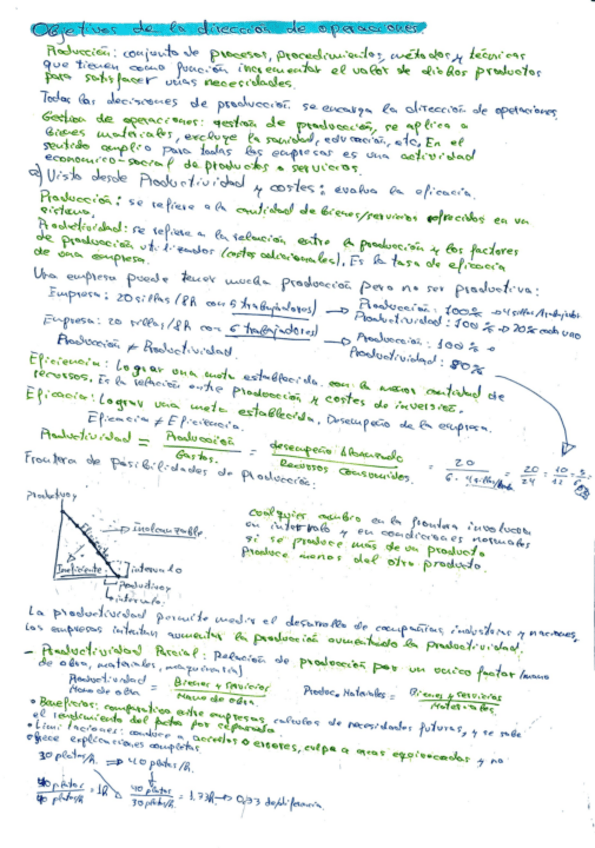 Objetivos de la dirección de operaciones.
Producción: conjunto de procesos, procedimientos, métodos y técnicas
que tienen como función incrementar el valor de dichos productos
para satisfacer unas necesidades.
Todas las decisiones de producción se encarga la dirección de operaciones.
Gestión de operaciones: gestión de producción, se aplica a
bienes materiales, excluye la sanidad, educación, etc. En el
sentido amplio para todas las empresas es una actividad
económico-social de productos o servicios.
a) Visto desde Productividad y costes: evalua la eficacia.
Producción: se refiere a la cantidad de bienes/servicios ofrecidos en un
sistema.
Productividad: se refiere a la relación entre la producción y los factores
de producción utilizados (costos adicionales). Es la tasa de eficacia
de una empresa.
Una empresa puede tener mucha producción pero no ser productiva:
Empresa: 20 sillas/8h con 5 trabajadores) → Producción: 100% → 4 sillas/trabajador
Productividad: 100% → 20% cada uno
Empresa: 20 sillas/8h con 6 trabajadores) → Producción: 100%
Productividad: 80%
Producción ≠ Productividad.
Eficiencia: Lograr una meta establecida con la menor cantidad de
recursos. Es la relación entre Producción y costes de inversión.
Eficacia: Lograr una meta establecida. Desempeño de la empresa.
Eficacia ≠ Eficiencia.
Productividad = Producción / Gastos = desempeño alcanzado / Recursos consumidos. = 20 / 6 · 4 sillas = 20/24 = 10/12 = 5/6
Frontera de Posibilidades de Producción:
Producto y
Inalcanzable
Eficiente
Ineficiente
intervalo
Producto
intervalo
cualquier cambio en la frontera involucra
un intervalo y en condiciones normales
si se produce más de un producto
produce menos del otro producto.
La productividad permite medir el desarrollo de compañías, industrias y naciones,
las empresas intentan aumentar la producción aumentando la productividad.
- Productividad Parcial: Relación de producción por un único factor (mano
de obra, materiales, maquinaria)
Productividad Mano de obra = Bienes y servicios / Mano de obra.
Produc. Materiales = Bienes y servicios / Materiales.
• Beneficios: comparativa entre empresas, calculos de necesidades futuras, y se sabe
el rendimiento del factor por separado.
• Limitaciones: conduce a aciertos o errores, culpa a areas equivocadas y no
ofrece explicaciones completas.
30 platos/h. ⇒ 40 platos/h.
40 platos / 40 platos/h = 1h
40 platos / 30 platos/h = 1,33h → 0,33 de diferencia